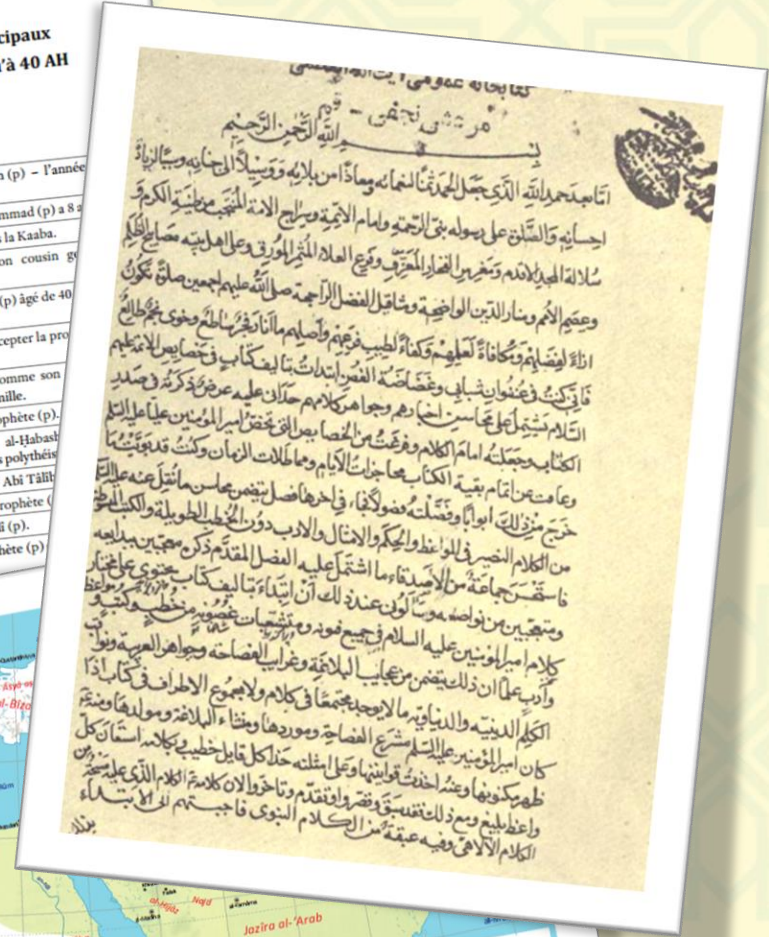 cipaux
’à 40 AH
n (p) – l’année
mmad (p) a 8 a
s la Kaaba.
on cousin ge
(p) âgé de 40
cepter la pro
omme son
nille.
ophète (p).
al-Ḥabash
s polythéis
Abî Tâlib
rophète (
î (p).
hète (p)
كتابخانه عمومى آيت الله العظمى
مرعشى نجفى - قم
بسم الله الرحمن الرحيم
اما بعد حمد الله الذى جعل الحمد ثمنا لنعمائه ومعاذا من بلائه ووسيلا الى جنانه وسببا لزيادة
احسانه والصلوة على رسوله نبى الرحمة وامام الائمة وسراج الامة المنتجب من طينة الكرم و
سلالة المجد الاقدم ومغرس الفخار المعرق وفرع العلاء المثمر المورق وعلى اهل بيته مصابيح الظلم
وعصم الامم ومنار الدين الواضحة ومثاقيل الفضل الراجحة صلى الله عليهم اجمعين صلوة تكون
ازاء لفضلهم ومكافاة لعملهم وكفاء لطيب فرعهم واصلهم ما انار فجر ساطع وخوى نجم طالع
فانى كنت فى عنفوان شبابى وغضاضة الغصن ابتدات بتاليف كتاب فى خصايص الائمة عليهم
السلام يشتمل على محاسن اخبارهم وجواهر كلامهم حدانى عليه غرض ذكرته فى صدر
الكتاب وجعلته امام الكلام وفرغت من الخصايص التى تخص امير المؤمنين عليا عليه السلم
وعاقت عن اتمام بقية الكتاب محاجزات الايام ومماطلات الزمان وكنت قد بوبت ما
خرج من ذلك ابوابا وفصلته فصولا فجاء فى اخرها فصل يتضمن محاسن ما نقل عنه عليه السلم
من الكلام القصير فى المواعظ والحكم والامثال والاداب دون الخطب الطويلة والكتب المبسوطة
فاستحسن جماعة من الاصدقاء ما اشتمل عليه الفصل المقدم ذكره معجبين ببدايعه
ومتعجبين من نواصعه وسالونى عند ذلك ان ابتداء بتاليف كتاب يحتوى على مختار
كلام امير المؤمنين عليه السلام فى جميع فنونه ومتشعبات غصونه من خطب وكتب و
وادب علما ان ذلك يتضمن من عجايب البلاغة وغرايب الفصاحة وجواهر العربية وثواقب
الكلم الدينية والدنياوية ما لا يوجد مجتمعا فى كلام ولا مجموع الاطراف فى كتاب اذ
كان امير المؤمنين عليه السلم مشرع الفصاحة وموردها ومنشاء البلاغة ومولدها ومنه
ظهر مكنونها وعنه اخذت قوانينها وعلى امثلته حذا كل قايل خطيب وبكلامه استعان كل
واعظ بليغ ومع ذلك فقد سبق وقصروا وتقدم وتاخروا لان كلامه الكلام الذى عليه مسحة من
الكلام الالاهى وفيه عبقة من الكلام النبوى فاجبتهم الى الابتداء
al-Ḥijâz
Najd
Jazîra al-‘Arab